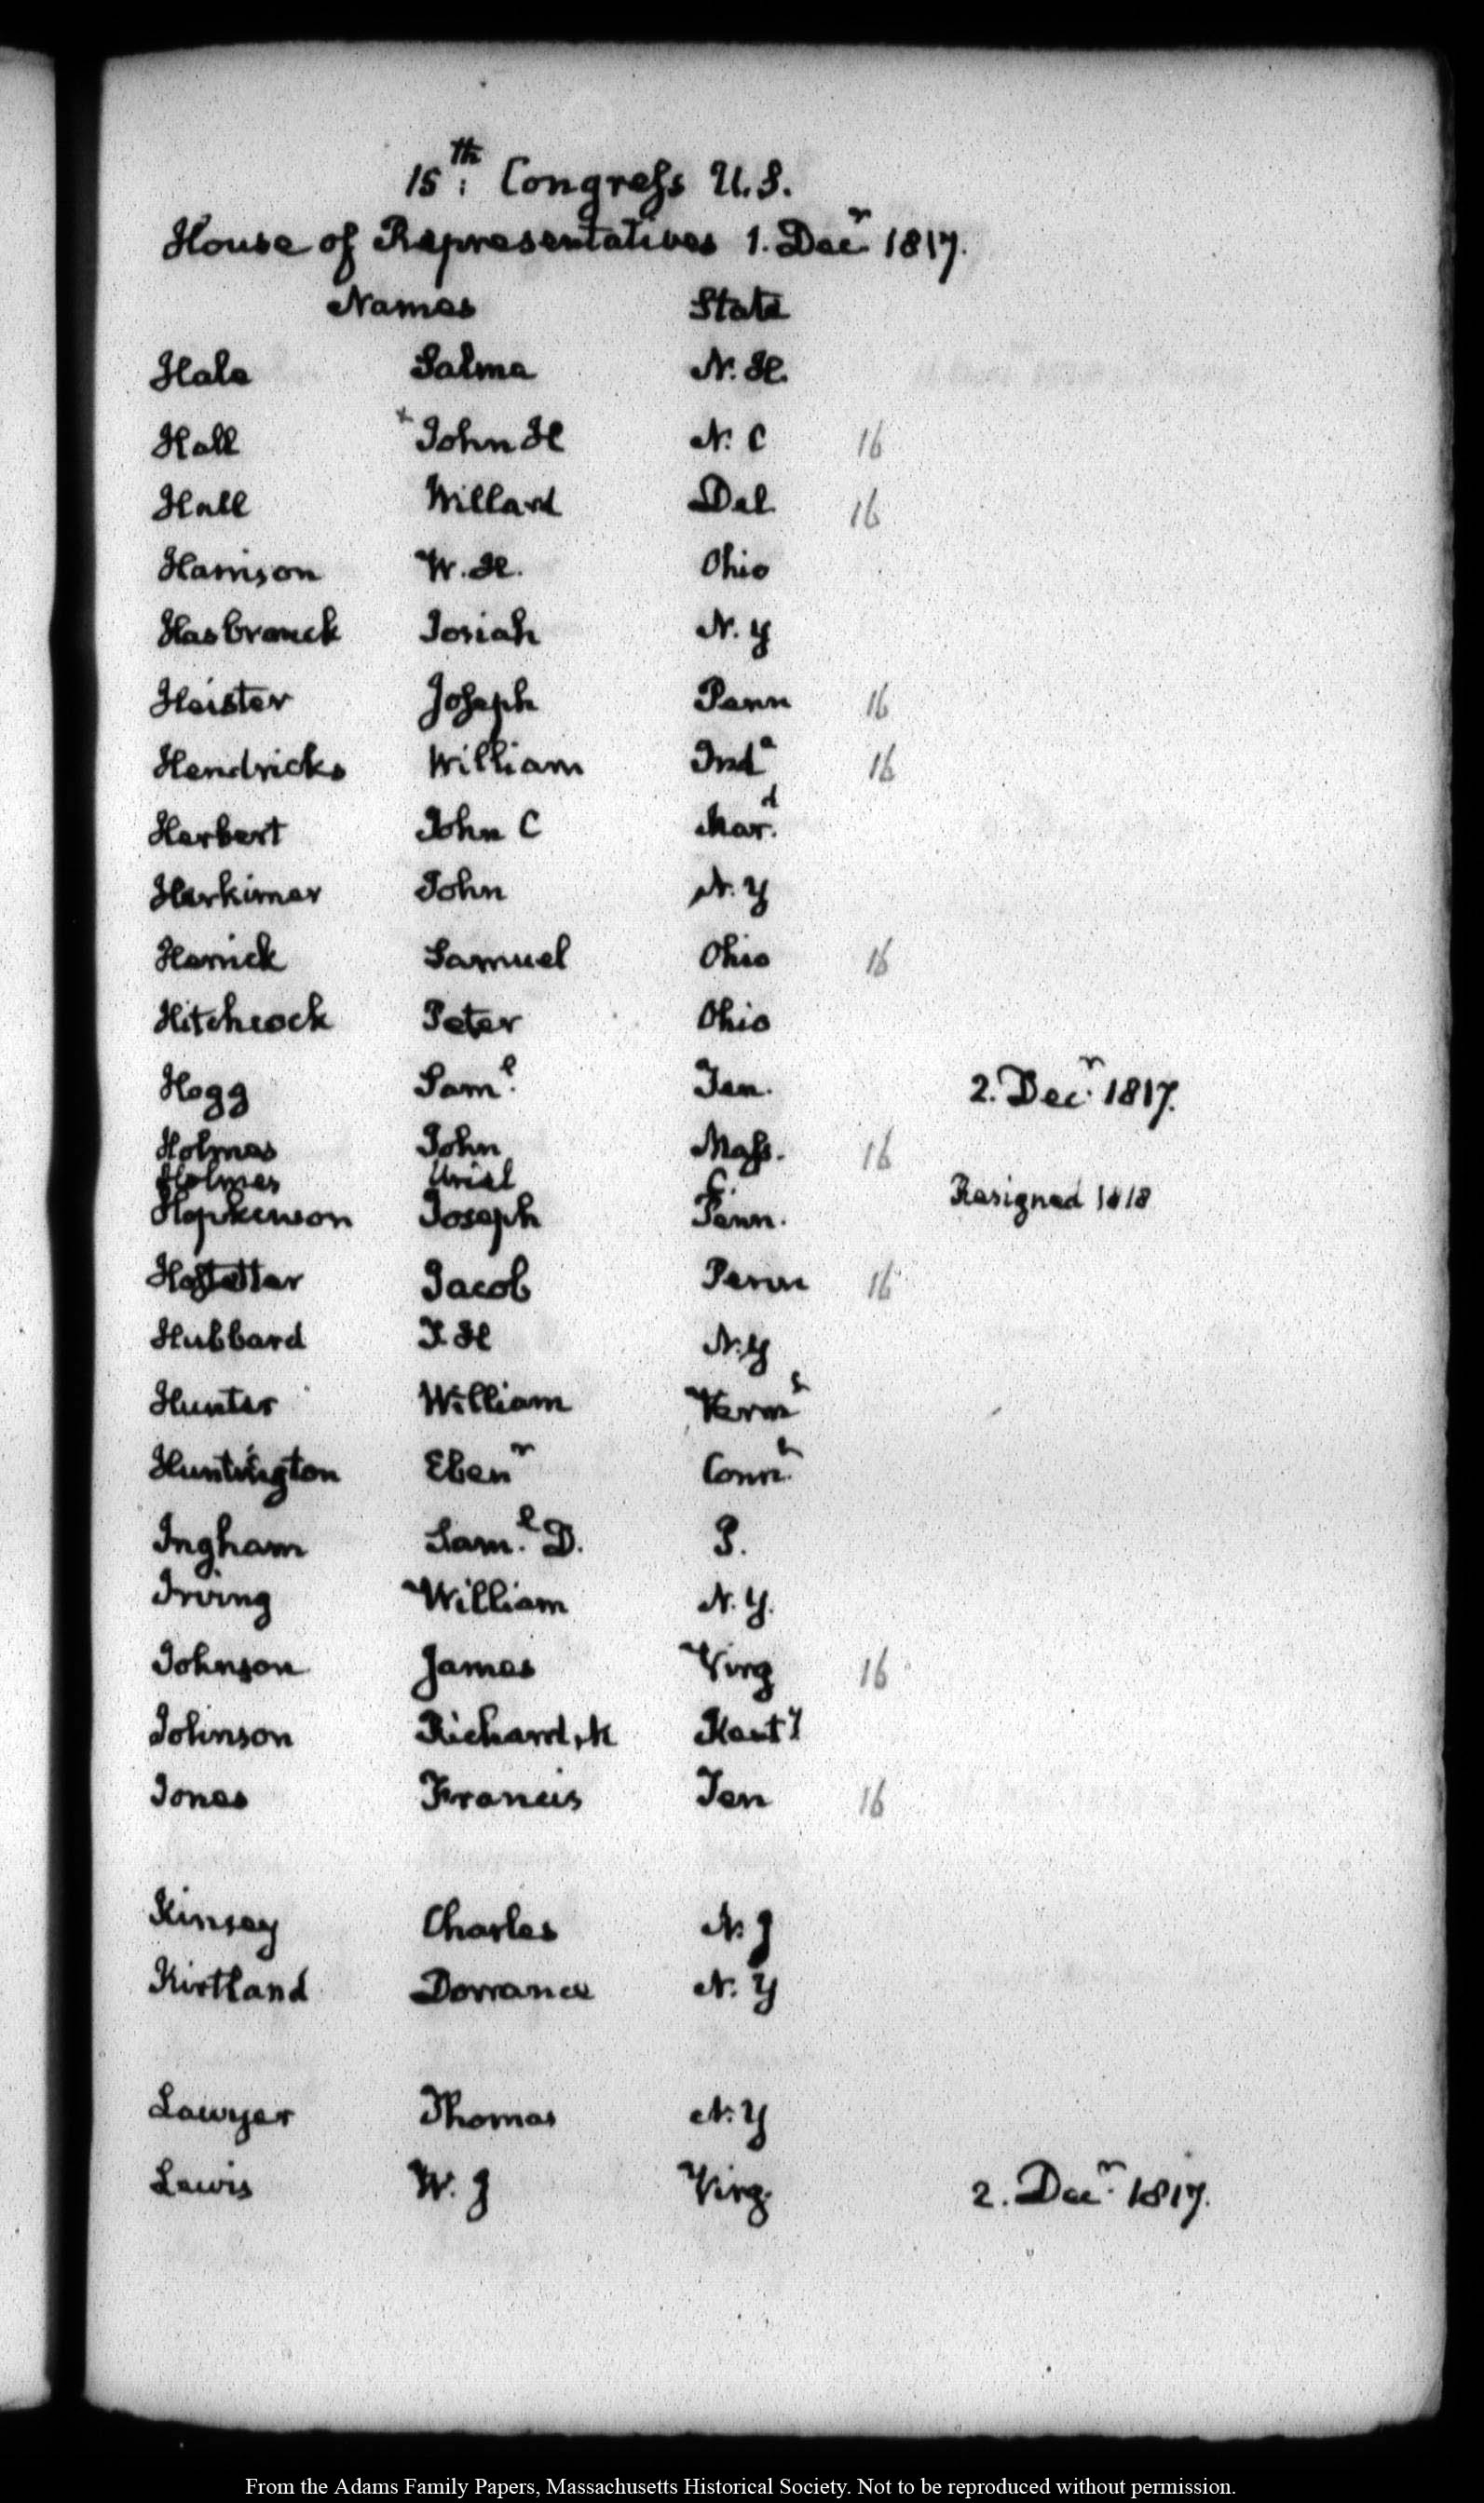 15th: Congress U.S.
House of Representatives 1. Decr 1817.
Names State
Hale Salma N. H.
Hall + John H N. C 16
Hall Willard Del. 16
Harrison W. H. Ohio
Hasbrouck Josiah N. Y
Heister Joseph Penn 16
Hendricks William Inda 16
Herbert John C Mard.
Herkimer John N. Y
Herrick Samuel Ohio 16
Hitchcock Peter Ohio
Hogg Saml. Ten. 2. Decr. 1817.
Holmes John Mass. 16
Holmes Uriel C. Resigned 1818
Hopkinson Joseph Penn.
Hostetter Jacob Penn 16
Hubbard T. H N. Y
Hunter William Vermt
Huntington Ebenr Connt.
Ingham Saml. D. P.
Irving William N. Y.
Johnson James Virg 16
Johnson Richard, M Kenty
Jones Francis Ten 16
Kinsey Charles N. J
Kirtland Dorrance N. Y
Lawyer Thomas N. Y
Lewis W. J Virg. 2. Decr. 1817.
From the Adams Family Papers, Massachusetts Historical Society. Not to be reproduced without permission.